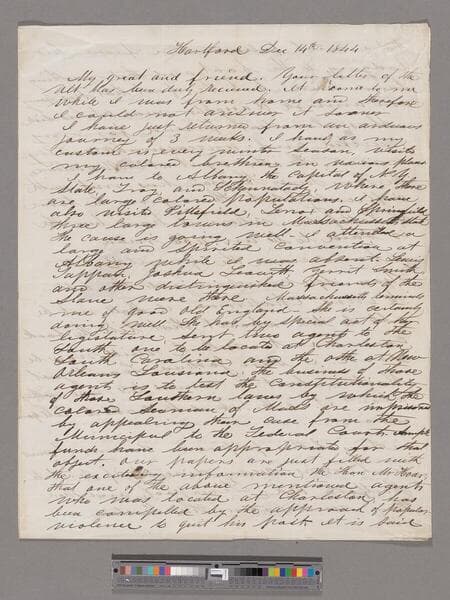 Hartford Dec 14th 1844
My great and friend. Your letter of the
ult has been duly received. It came to me
while I was from home and therefore
I could not answer it sooner
I have just returned from an arduous
journey of 3 weeks. I have as my
custom is every winter season visits
my colored brethren in various places
I have to Albany, the capital of N Y
State, Troy and Schenectady, where there
are large colored populations. I have
also visits Pittsfield, Lenox and Springfield
three large towns in Massachusetts
the cause is going well. I attended a
large and spirited convention at
Albany while I was absent. Lewis
Tappan, Joshua Leavitt Gerrit Smith
and other distinguished friends of the
Slave were there. Massachusetts reminds
me of good old England. She is certainly
doing well. She has by special act of the
legislature sent two agents to the
South, one to be locate at Charleston
South Carolina and the othe at New
Orleans Louisiana. The business of those
agents is to test the constitutionality
of those Southern laws by which the
colored seaman of Mass are imprisoned
by appealing their case from the
Municipal to the Federal Courts.
funds have been appropriate for that
object. Our papers are just filled with
the exciting information the Hon Mr Hoar,
that one of the above mentioned agents
who was located at Charleston, has
been compelled by the approach of popular
violence to quit his post. It is said